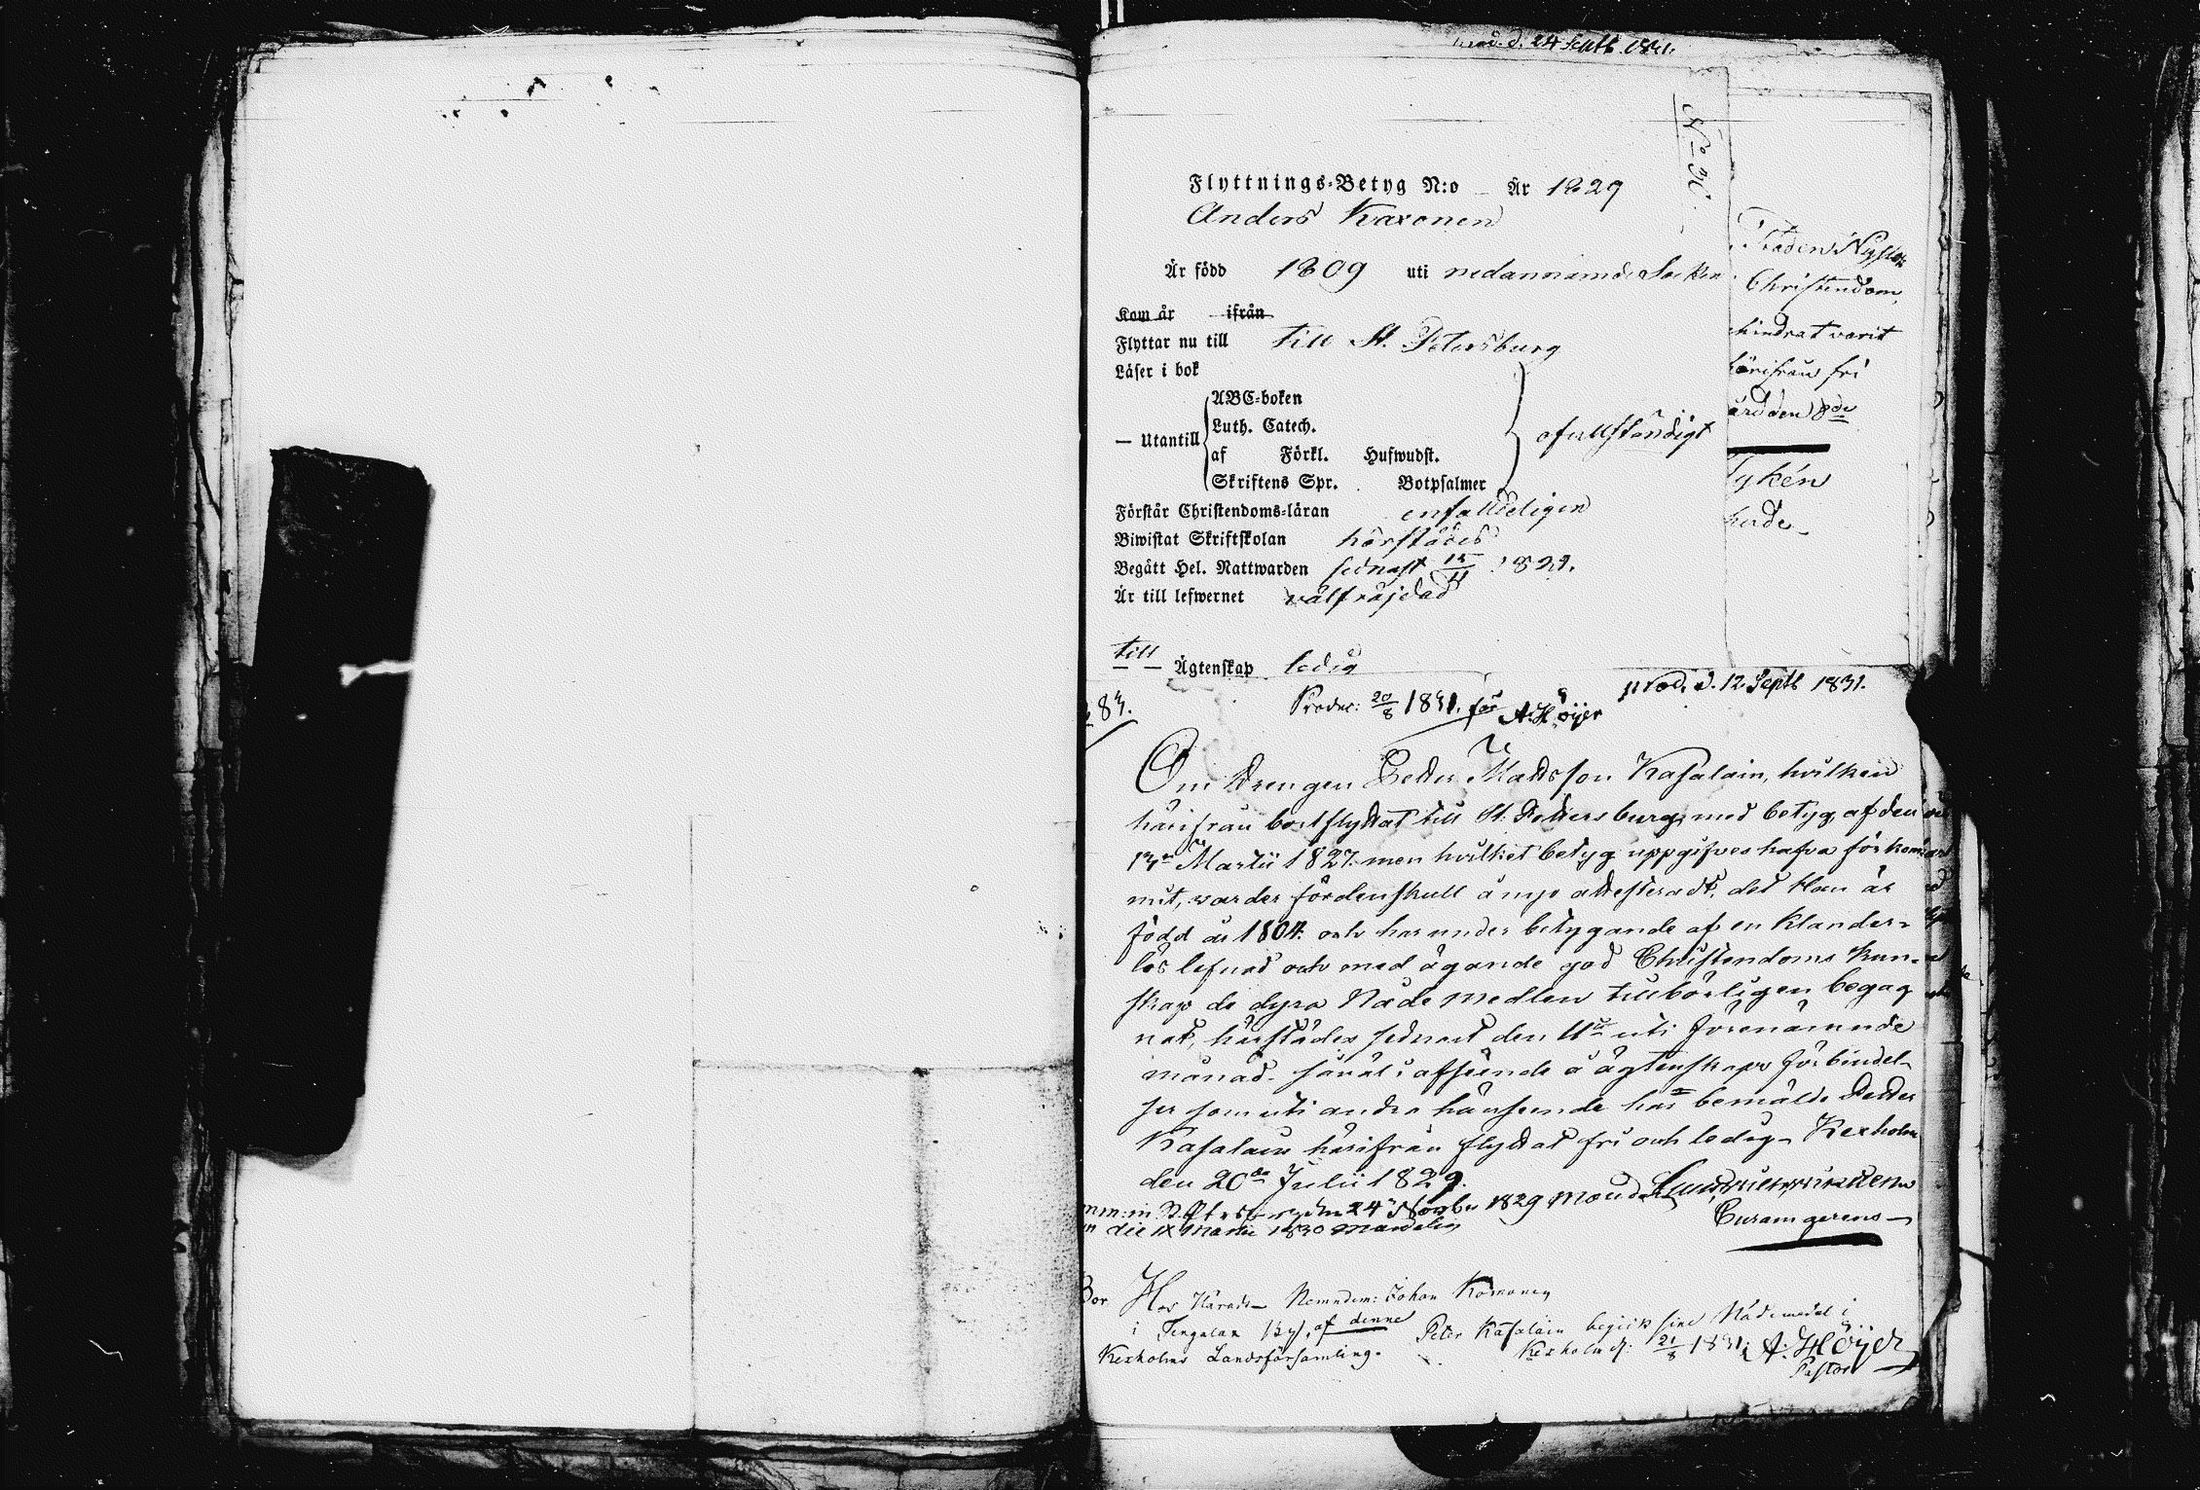 prod. d. 24 Septb. 1831.
Flyttnings-Betyg N:o År 1829
Anders Kaxonen
Är född 1809 uti nedannämde Socken
Kom år ifrån
Flyttar nu till till St. Petersburg
Läser i bok
— Utantill
ABC-boken
Luth. Catech.
af Förkl. Hufwudst.
Skriftens Spr. Botpsalmer
ofullständigt
Förstår Christendoms-läran enfalldeligen
Biwistat Skriftskolan härstädes
Begått Hel. Nattwarden sednast
Är till lefwernet välfräjdad
till — Ägtenskap ledig
Staden
Christendom,
hindrat varit
härifrån fri
den 8de
Produc: 20/8 1831. för A. Höijer
prod. d. 12 Septb 1831.
83.
Om Drengen Petter Mattsson Kasalain, hvilken
härifrån bortflyttat till St. Pettersburg, med betyg af den
Martii 1827. men hvilket betyg uppgifves hafva förkom-
mit, varder fördenskull å nyo attesteradt, det Han är
född år 1804. och har under betygande af en klander-
lös lefnad och med ägande god Christendoms kun-
skap de dyra Nådemedlen tillbörligen begag
nat, härstädes sednast den 11te uti förenämnde
månad. såväl i afseende å ägtenskaps förbindel-
ser som uti andra hänseende har bemälde Petter
Kasalain härifrån flyttat fri och ledig. Kexholm
den 20de Julii 1829.
Curam gerens
den 24 Novbr 1829
die IX Martii 1830 Mandelin
Bor Hos Härads Nemndem: Johan Komonen
i Tengalax By, af denne
Kexholms Landsförsamling.
Peter Kasalain begick sine Nådemedel i
Kexholm d: 21/8 1831. A. Höijer
Pastor